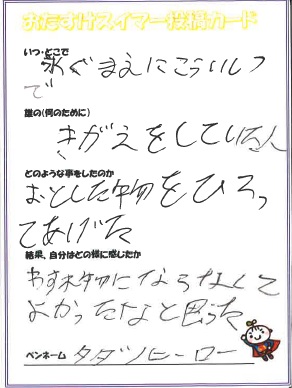 おたすけスイマー投稿カード
いつ・どこで
氷ぐまえにこういしつ
で
誰の(何のために)
きがえをしている人
どのような事をしたのか
おとした物をひろっ
てあげた
結果、自分はどの様に感じたか
わすれ物にならなくて
よかったなと思った
ペンネーム タダノヒーロー